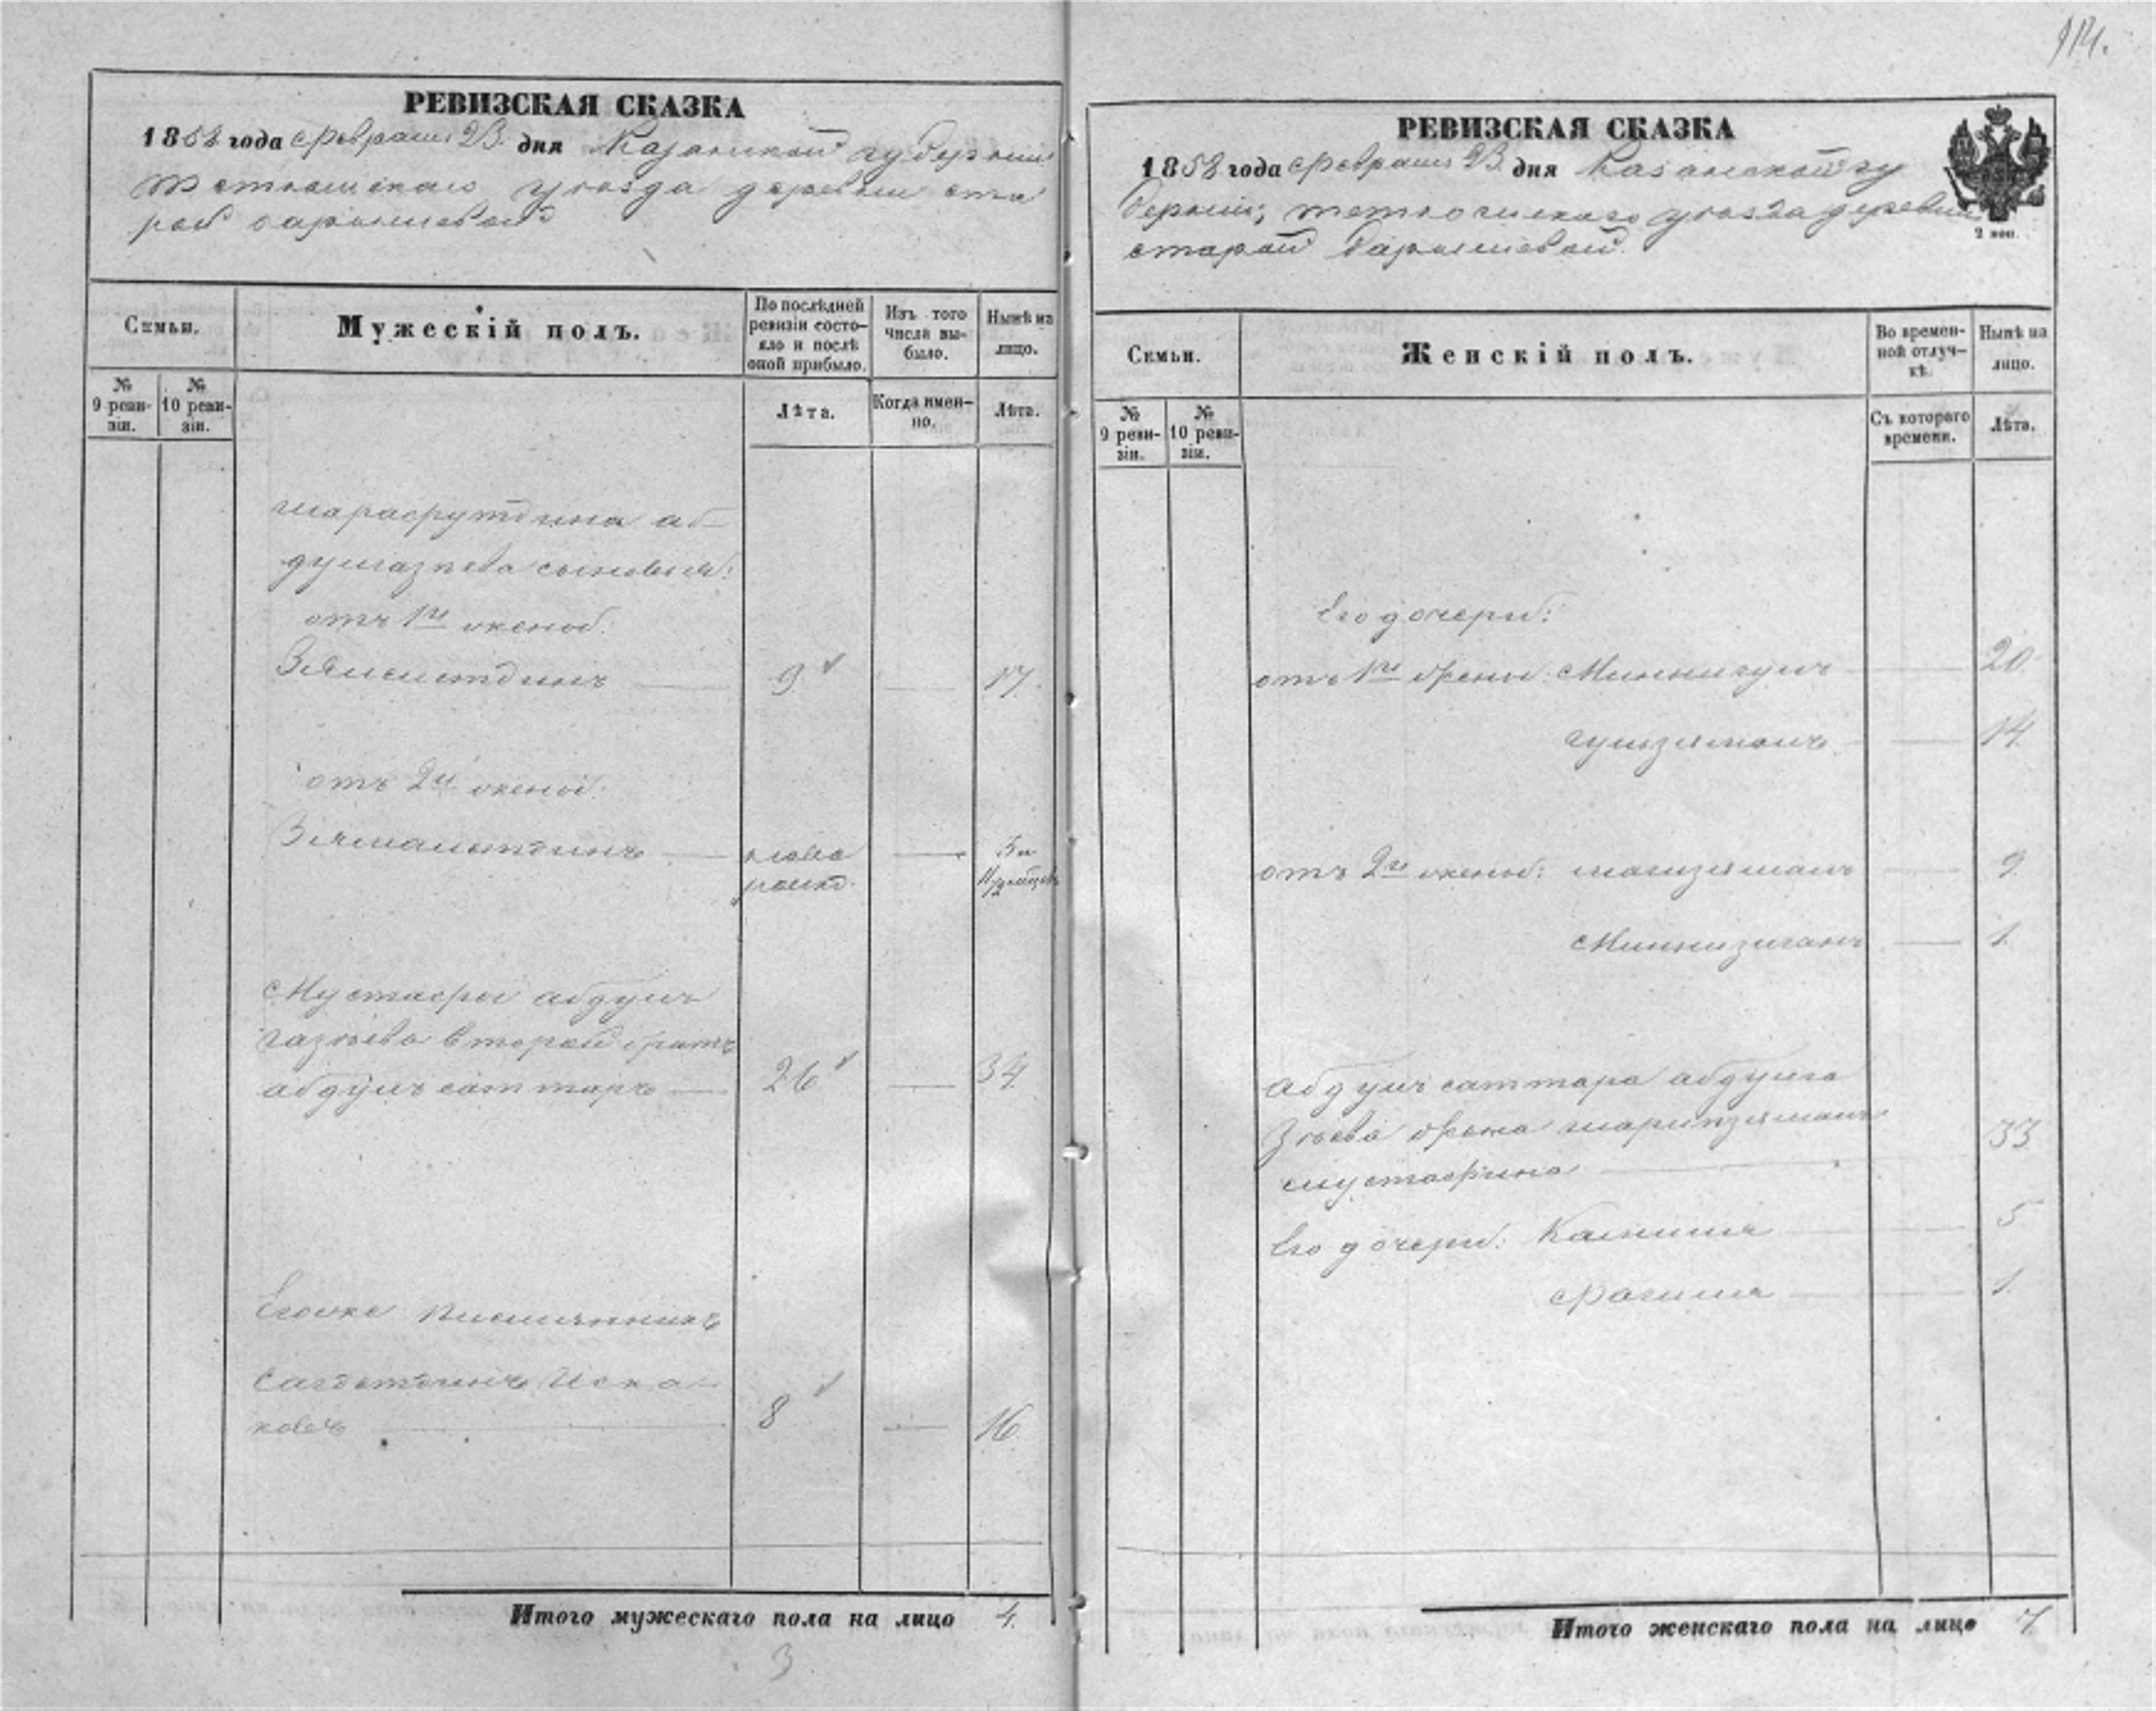 114.
РЕВИЗСКАЯ СКАЗКА
1858 года февраля 23 дня Казанской губернии
Тетюшскаго уезда деревни ста
рой барышевой
Семьи.
Мужескій полъ.
По послѣдней ревизіи состо-
яло и послѣ оной прибыло.
Изъ того числа вы-
было.
Нынѣ на лицо.
№ 9 реви-
зіи.
№ 10 реви-
зіи.
Лѣта.
Когда имен-
но.
Лѣта.
шарафутдина аб
дулгазиева сыновья:
отъ 1й жены:
9
17.
отъ 2й жены:
ново
рожд.
Мустафы абдулъ
газыева второй братъ
абдулъ саттаръ
26
34
Его же племянникъ
Сагдетдинъ Иска
ковъ
8
16.
Итого мужескаго пола на лицо 4.
3
РЕВИЗСКАЯ СКАЗКА
1858 года февраля 23 дня Казанской гу
берніи, тетюшскаго уезда деревни
старой барышевой.
2 коп.
Семьи.
Женскій полъ.
Во времен-
ной отлуч-
кѣ.
Нынѣ на лицо.
№ 9 реви-
зіи.
№ 10 реви-
зіи.
Съ котораго времени.
Лѣта.
Его дочери:
отъ 1й жены: Миннигуль 20.
гульзяманъ 14.
отъ 2й жены: шагизяманъ 9.
Миннизиганъ 1.
абдулъ саттара абдулга
зыева жена шарипзяманъ
мустафина 33
Его дочери: Калима 5
фагима 1.
Итого женскаго пола на лицо 7.